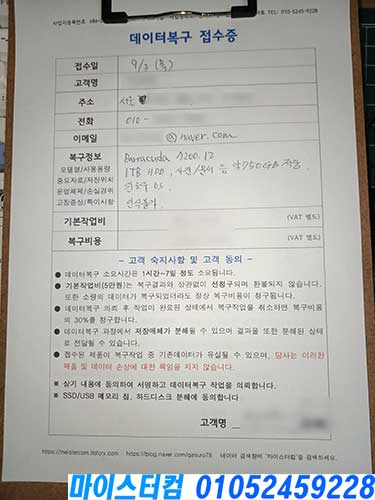 사업자등록번호
TEL: 010-5245-9228
데이터복구 접수증
접수일 9/3
고객명
주소 서울
전화 010-
이메일 @naver.com
복구정보 Barracuda 7200.12
모델명/사용용량 1TB HDD, 사진/문서 등 약750GB 저장
중요자료/저장위치
운영체제/손실경위
고장증상/특이사항 인식불가
기본작업비 (VAT 별도)
복구비용 (VAT 별도)
- 고객 숙지사항 및 고객 동의 -
● 데이터복구 소요시간은 1시간~7일 정도 소요됩니다.
● 기본작업비(5만원)는 복구결과와 상관없이 선청구되며 환불되지 않습니다.
또한 소량의 데이터가 복구되었더라도 정상 복구비용이 청구됩니다.
● 데이터복구 의뢰 후 작업이 완료된 상태에서 복구작업을 취소하면 복구비용
의 30%를 청구합니다.
● 데이터복구 과정에서 저장매체가 분해될 수 있으며 결과물 또한 분해된 상태
로 전달될 수 있습니다.
● 접수된 제품이 복구작업 중 기존데이터가 유실될 수 있으며, 당사는 이러한
제품 및 데이터 손상에 대한 책임을 지지 않습니다.
■ 상기 내용에 동의하여 서명하고 데이터복구 작업을 의뢰합니다.
■ SSD/USB 메모리 칩, 하드디스크 분해에 동의합니다
고객명
https://meistercom.tistory.com https://blog.naver.com/gasuro78 네이터 검색창에 '마이스터컴'을 검색하세요.
마이스터컴 01052459228